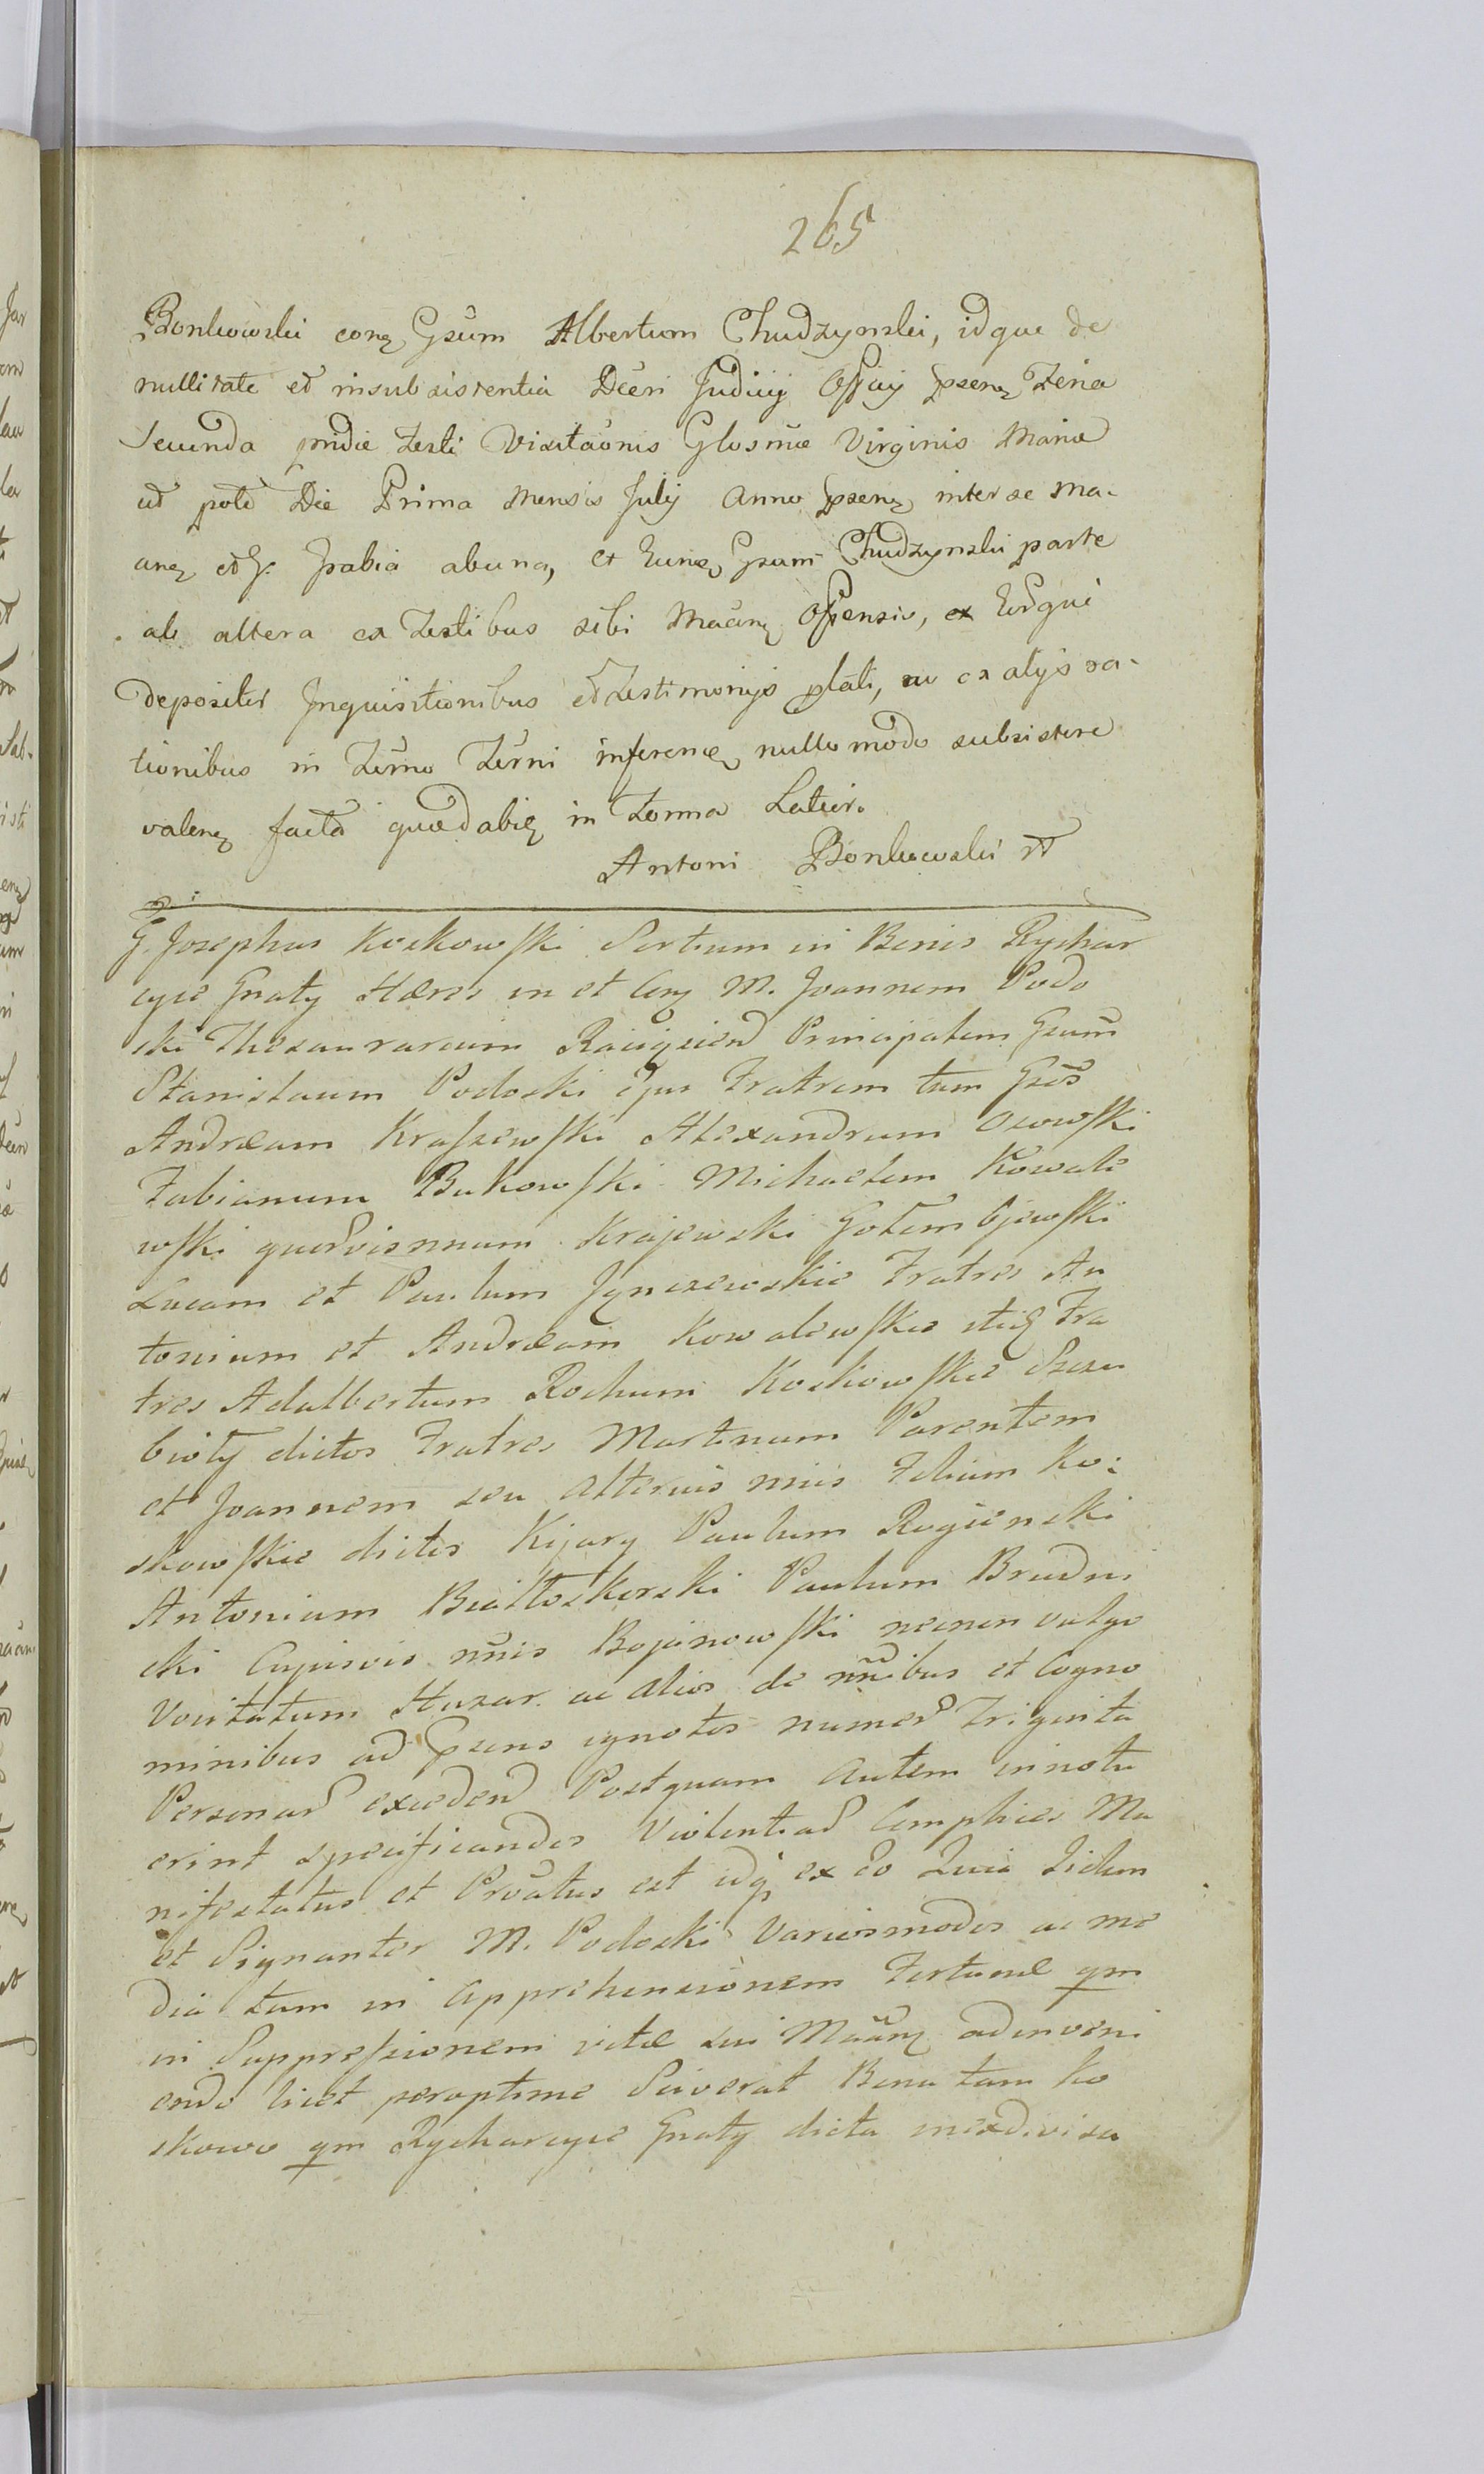 265
Bonkowski conq Gsum Albertum Chudzynski, idque de
nullitate et insubsistentia Decri Judicij Offcij psenq Feria
Secunda pridie Festi Visitaonis Glosmæ Virginis Mariæ
ut pote Die Prima Mensis Julij Anno psenq inter se Ma-
anq et G. abuna, et Eunq Gsum Chudzynski parte
ab altera ex Testibus sibi Macanq Offensis, ex Eorque
depositis Inquisitionibus et Testimonijs plati, ac ex alijs ra-
tionibus in Termo Terni inferenq nullo modo subsistere
valenq facto quæd in Forma Latior.
Antoni Bonkowski
G. Josephus Koskowski Sortium in Bonis Rychar
cyce Gnaty Hæres in et Conq M. Joannem Podo
ski Thesaurarium Raciązien Principalem Gsum
Stanislaum Podoski ejus Fratrem tum Gsos
Andræam Kraszewski Alexandrum Osowski
Fabianum Bukowski Michaelem Kowale
wski quosvis nnum Krajewski Gołembjewski
Lucam et Paulum Jynczewskie Fratres An
tonium et Andræam Kowalewskie itiq Fra
tres Adalbertum Rochum Koskowskie Szczu
bioty dictos Fratres Martinum Parentem
et Joannem seu alterius nnis Filium Ko:
skowskie dictos Kijary Paulum Rogienski
Antonium Białoskorski Paulum Brudni
cki Cujusvis nnis Bojanowski necnon vulgo
Vocitatum Huzar ac alios de nnibus et Cogno
minibus ad psens ignotos numero Triginta
Personar exceden Postquam autem innotu
erint specificandos Violentiar Complices Ma
nifestatus et Prvatus est idq ex eo Quia Iidem
et Signanter M. Podoski Varijs modis ac me
dia tum in apprehensionem Fortunæ qm
in Suppressionem vitæ sui Maanq adinveni
endo licet peroptime Sciverat Bona tam Ko
skowo qm Rycharcyce Gnaty dicta inexdivisa